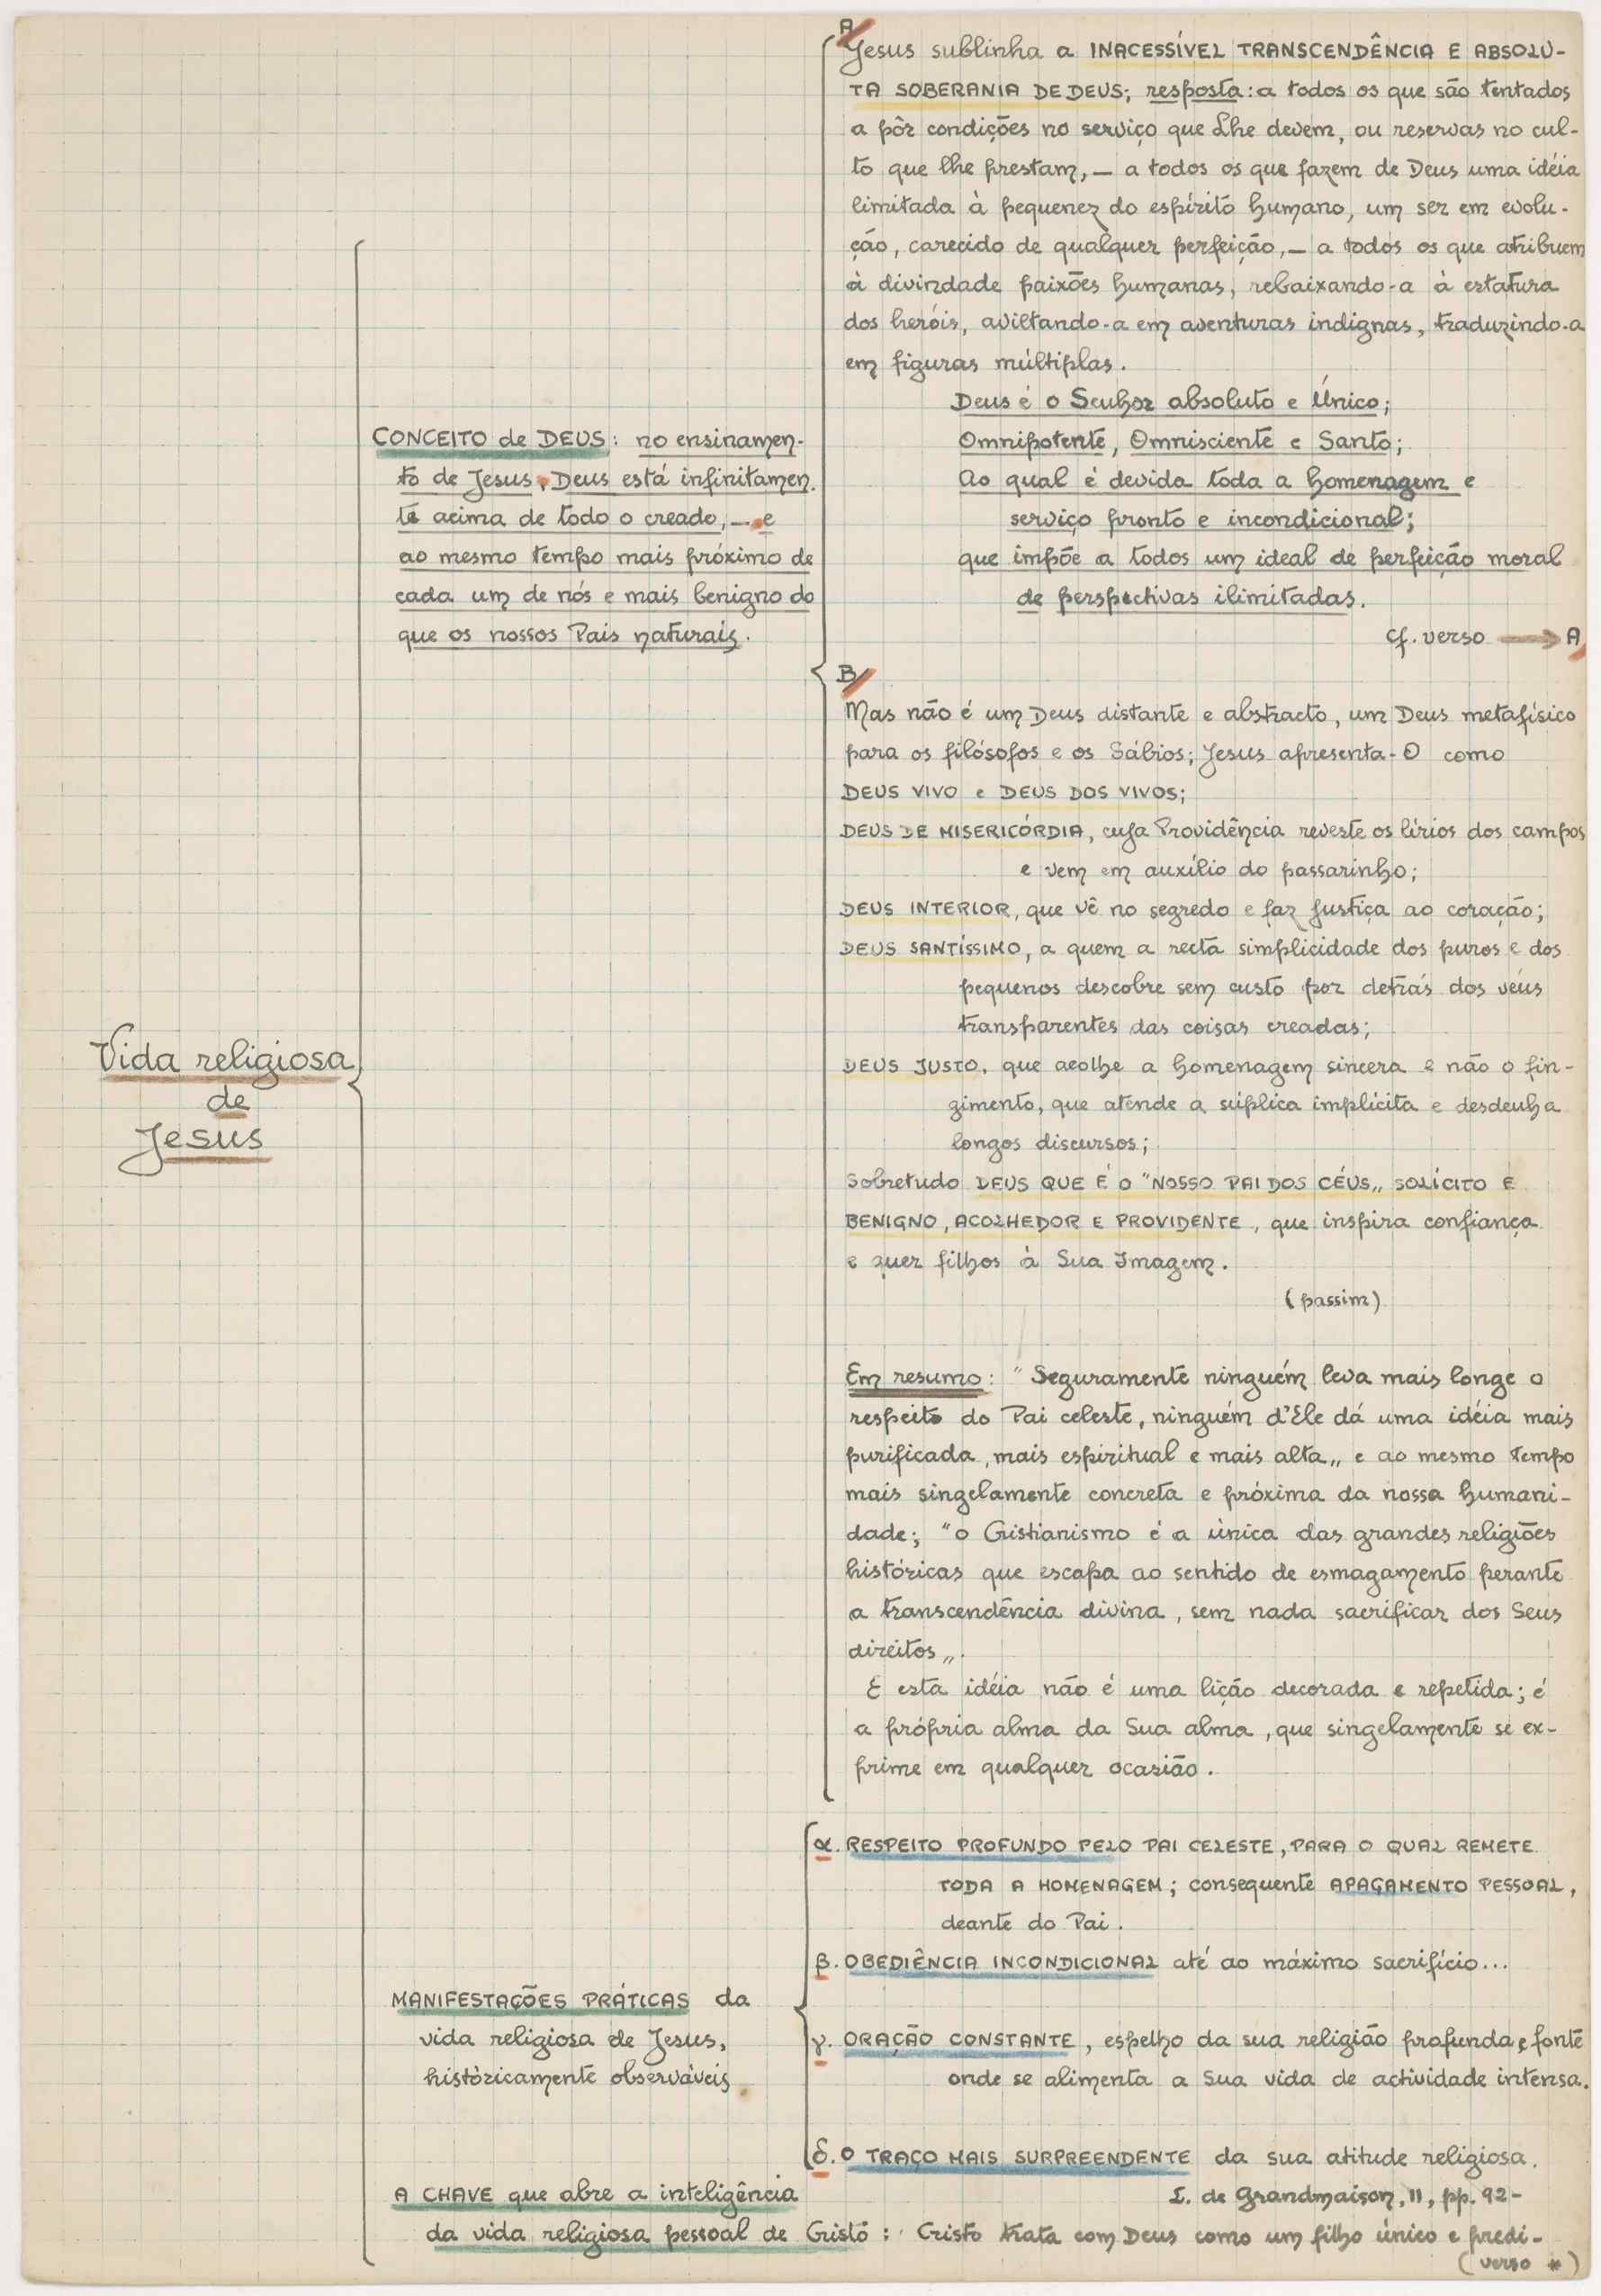 Vida religiosa
de
Jesus
CONCEITO de DEUS: no ensinamen-
to de Jesus, Deus está infinitamen-
te acima de todo o creado, — e
ao mesmo tempo mais próximo de
cada um de nós e mais benigno do
que os nossos Pais naturais.
A/
Jesus sublinha a INACESSÍVEL TRANSCENDÊNCIA E ABSOLU-
TA SOBERANIA DE DEUS; resposta: a todos os que são tentados
a pôr condições no serviço que Lhe devem, ou reservas no cul-
to que lhe prestam, — a todos os que fazem de Deus uma idéia
limitada à pequenez do espírito humano, um ser em evolu-
ção, carecido de qualquer perfeição, — a todos os que atribuem
à divindade paixões humanas, rebaixando-a à estatura
dos heróis, aviltando-a em aventuras indignas, traduzindo-a
em figuras múltiplas.
Deus é o Senhor absoluto e Único;
Omnipotente, Omnisciente e Santo;
Ao qual é devida toda a homenagem e
serviço pronto e incondicional;
que impõe a todos um ideal de perfeição moral
de perspectivas ilimitadas.
cf. verso → A
B/
Mas não é um Deus distante e abstracto, um Deus metafísico
para os filósofos e os Sábios; Jesus apresenta-O como
DEUS VIVO e DEUS DOS VIVOS;
DEUS DE MISERICÓRDIA, cuja Providência reveste os lírios dos campos
e vem em auxílio do passarinho;
DEUS INTERIOR, que vê no segredo e faz justiça ao coração;
DEUS SANTÍSSIMO, a quem a recta simplicidade dos puros e dos
pequenos descobre sem custo por detrás dos véus
transparentes das coisas creadas;
DEUS JUSTO, que acolhe a homenagem sincera e não o fin-
gimento, que atende a súplica implícita e desdenha
longos discursos;
Sobretudo DEUS QUE É O "NOSSO PAI DOS CÉUS„ SOLÍCITO E
BENIGNO, ACOLHEDOR E PROVIDENTE, que inspira confiança
e quer filhos à Sua Imagem.
(passim)
Em resumo: "Seguramente ninguém leva mais longe o
respeito do Pai celeste, ninguém d'Ele dá uma idéia mais
purificada, mais espiritual e mais alta„ e ao mesmo tempo
mais singelamente concreta e próxima da nossa humani-
dade; "o Cristianismo é a única das grandes religiões
históricas que escapa ao sentido de esmagamento perante
a transcendência divina, sem nada sacrificar dos Seus
direitos„.
E esta idéia não é uma lição decorada e repetida; é
a própria alma da Sua alma, que singelamente se ex-
prime em qualquer ocasião.
MANIFESTAÇÕES PRÁTICAS da
vida religiosa de Jesus,
històricamente observáveis.
α. RESPEITO PROFUNDO PELO PAI CELESTE, PARA O QUAL REMETE
TODA A HOMENAGEM; consequente APAGAMENTO PESSOAL,
deante do Pai.
β. OBEDIÊNCIA INCONDICIONAL até ao máximo sacrifício...
γ. ORAÇÃO CONSTANTE, espelho da sua religião profunda e fonte
onde se alimenta a Sua vida de actividade intensa.
δ. O TRAÇO MAIS SURPREENDENTE da sua atitude religiosa.
L. de Grandmaison, II, pp. 92-
A CHAVE que abre a inteligência
da vida religiosa pessoal de Cristo: Cristo trata com Deus como um filho único e predi-
(verso *)